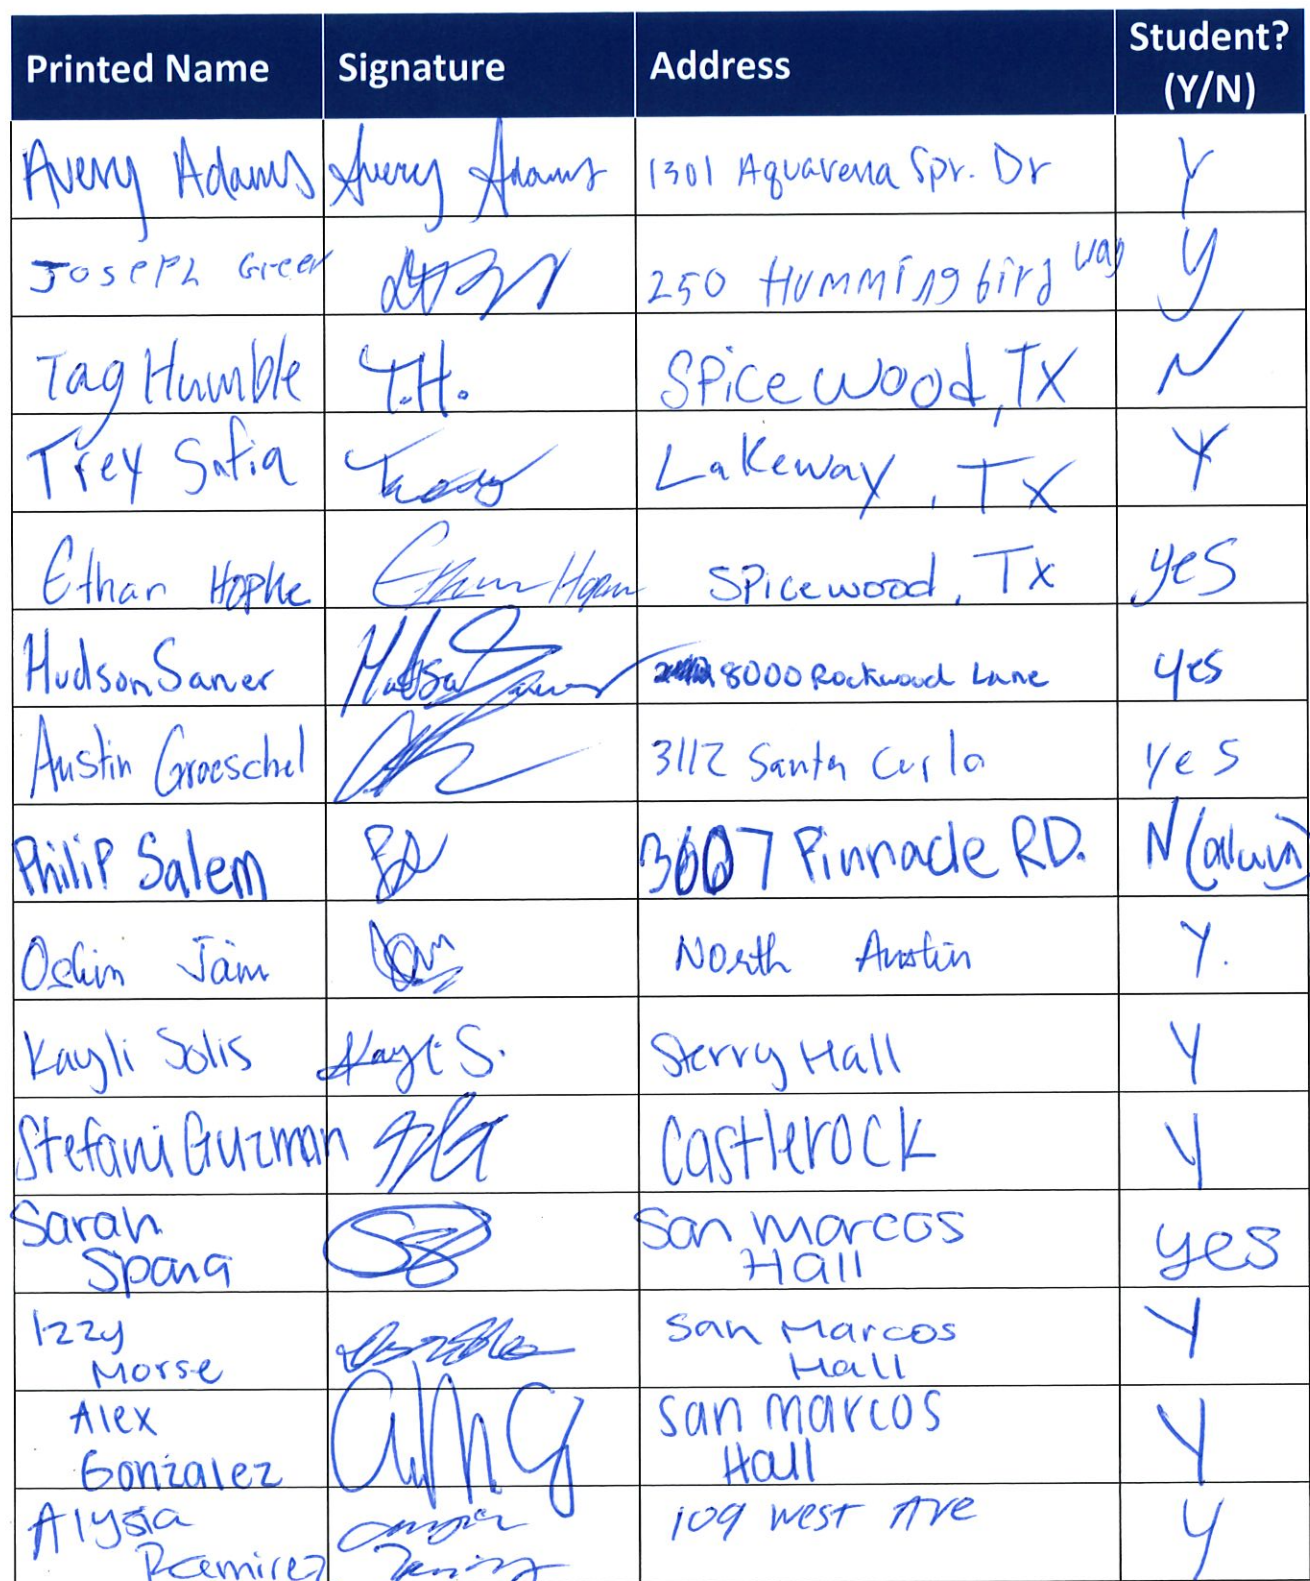 Printed Name Signature Address Student? (Y/N)
Avery Adams Avery Adams 1301 Aquarena Spr. Dr Y
Joseph Green 250 Hummingbird Way Y
Tag Humble T.H. Spicewood, TX N
Trey Safia Lakeway, TX Y
Ethan Hopke Ethan Spicewood, Tx yes
Hudson Saner 8000 Rockwood Lane yes
Austin Groeschel 3112 Santa yes
Philip Salem Pinnacle RD. N (alum)
Jain North Austin Y.
Kayli Solis Kayli S. Sterry Hall Y
Stefani Guzman Castlerock Y
Sarah
Spana San Marcos
Hall yes
Izzy
Morse San Marcos
Hall Y
Alex
Gonzalez AMG San Marcos
Hall Y
Alysia
Ramirez 109 West Ave Y